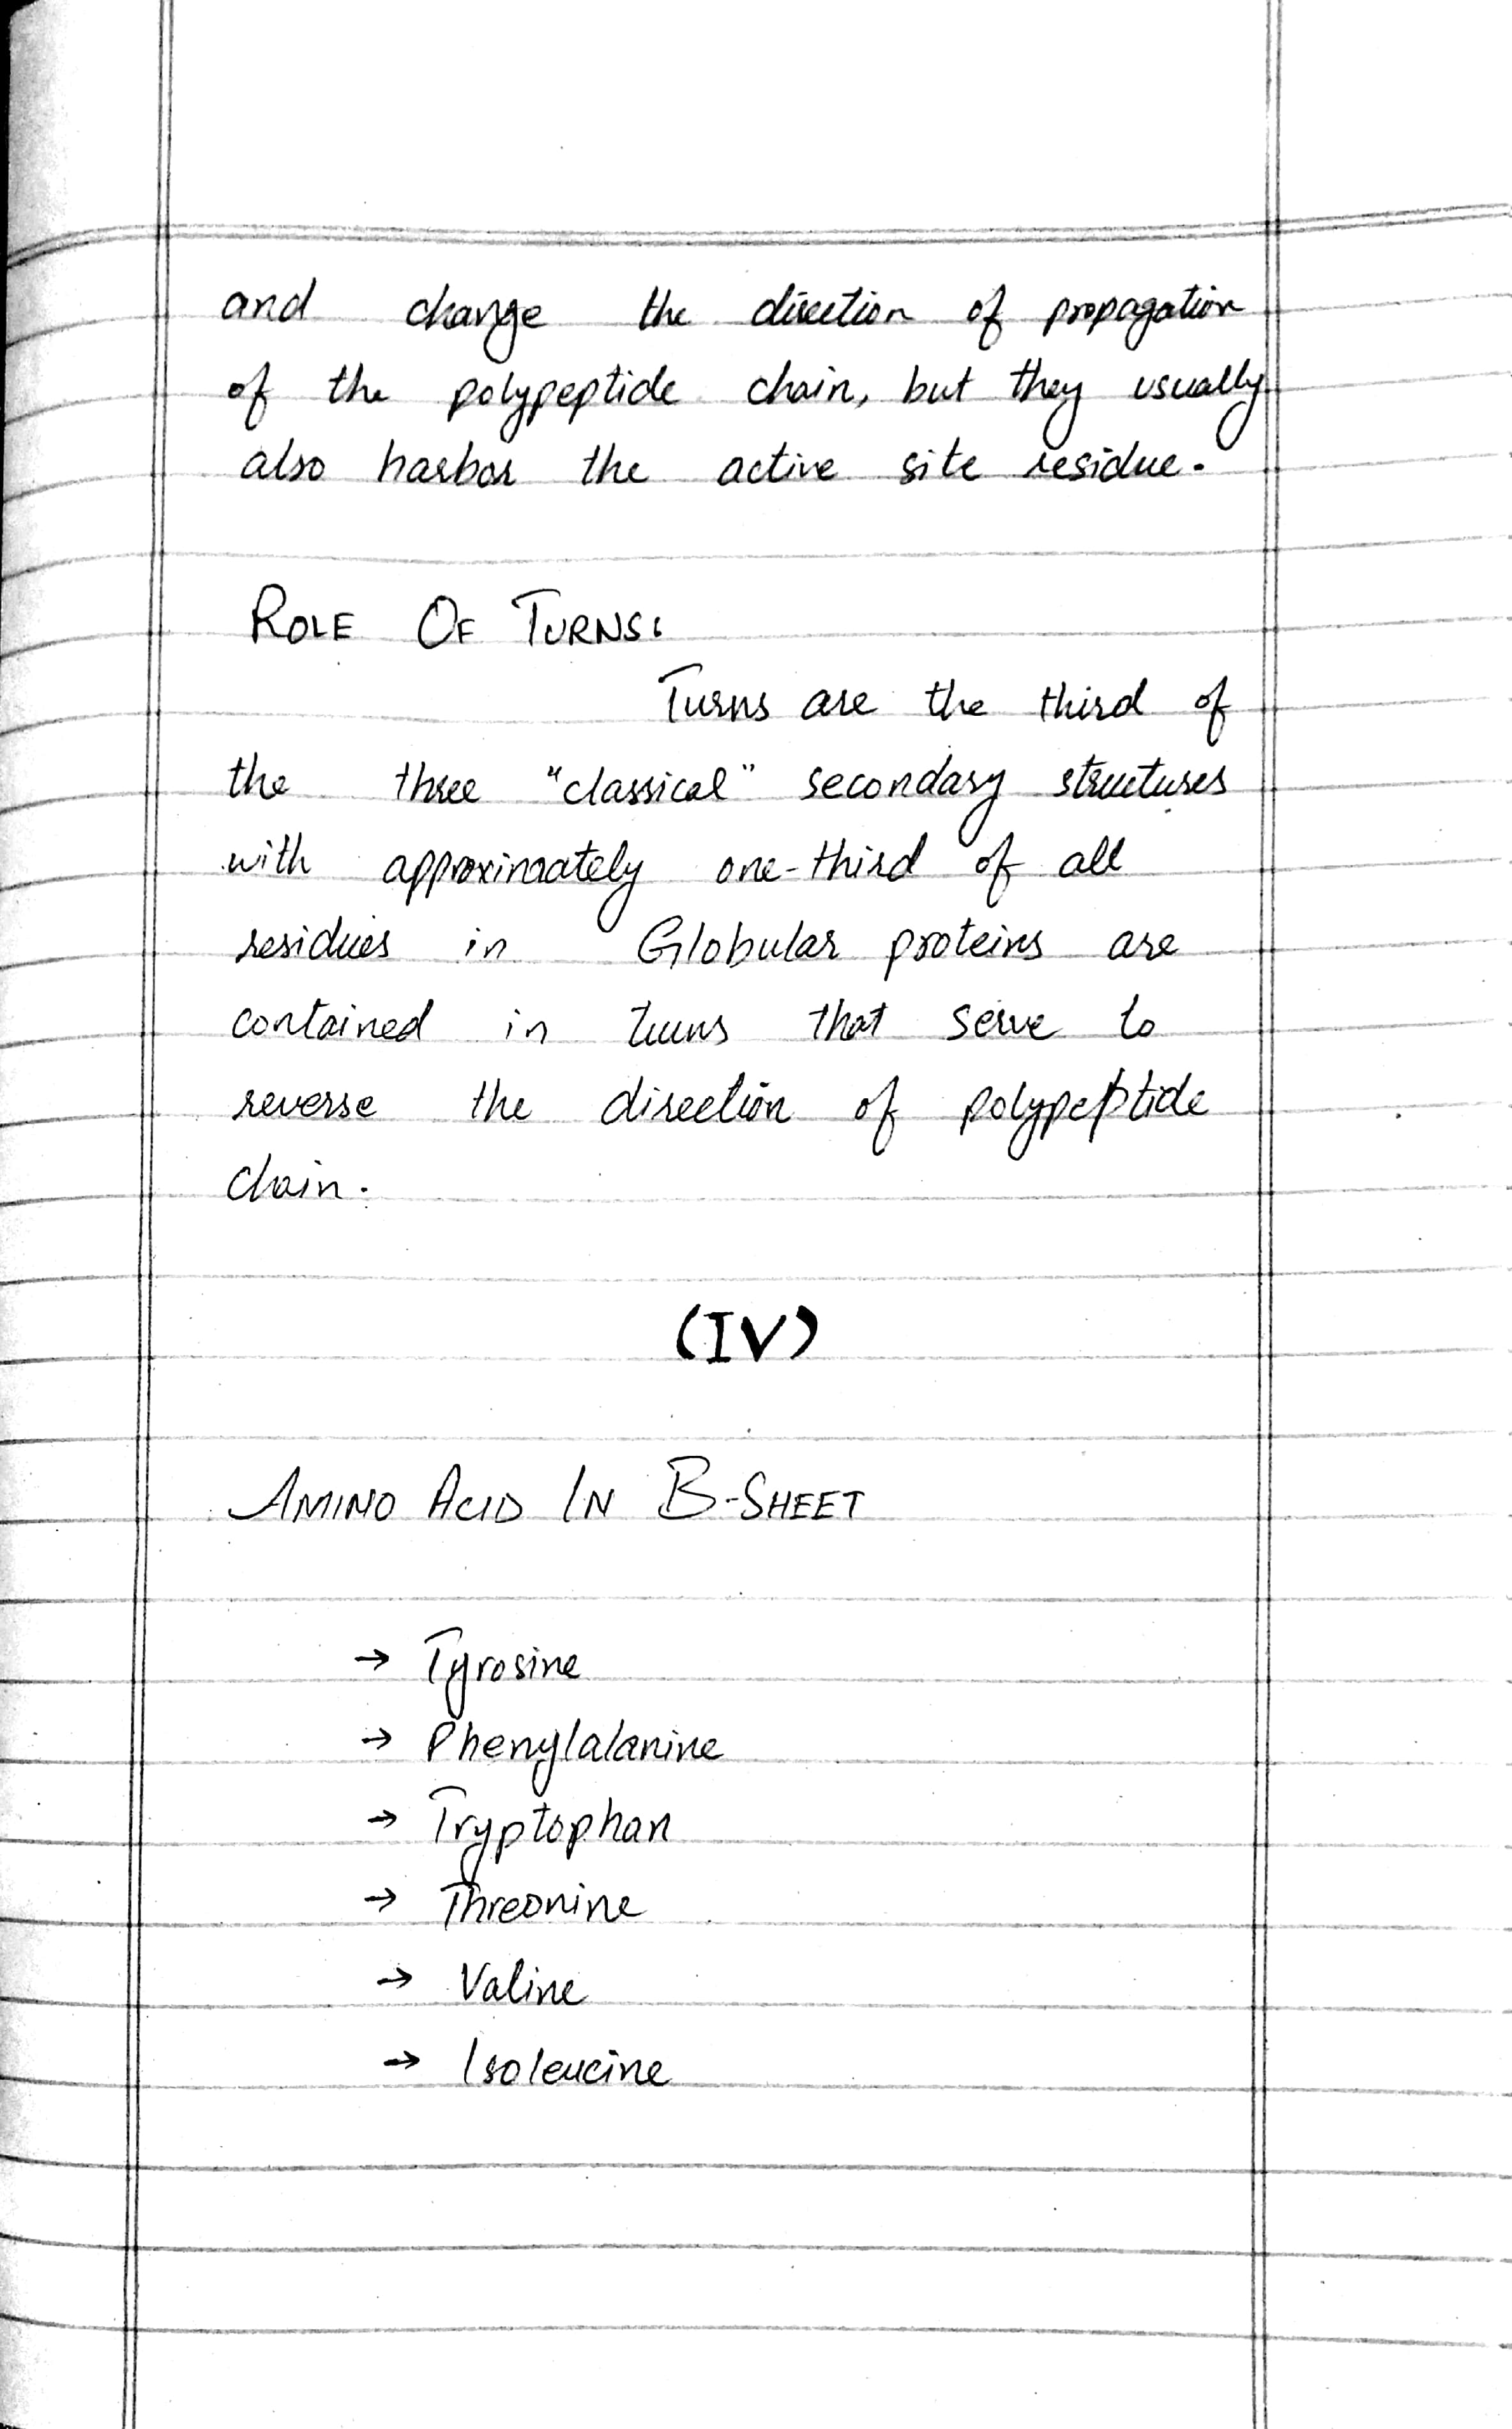 and change the direction of propagation
of the polypeptide chain, but they usually
also harbor the active site residue.
ROLE OF TURNS:
Turns are the third of
the three "classical" secondary structures
with approximately one-third of all
residues in Globular proteins are
contained in turns that serve to
reverse the direction of polypeptide
chain.
(IV)
AMINO ACID IN B-SHEET
→ Tyrosine
→ Phenylalanine
→ Tryptophan
→ Threonine
→ Valine
→ Isoleucine